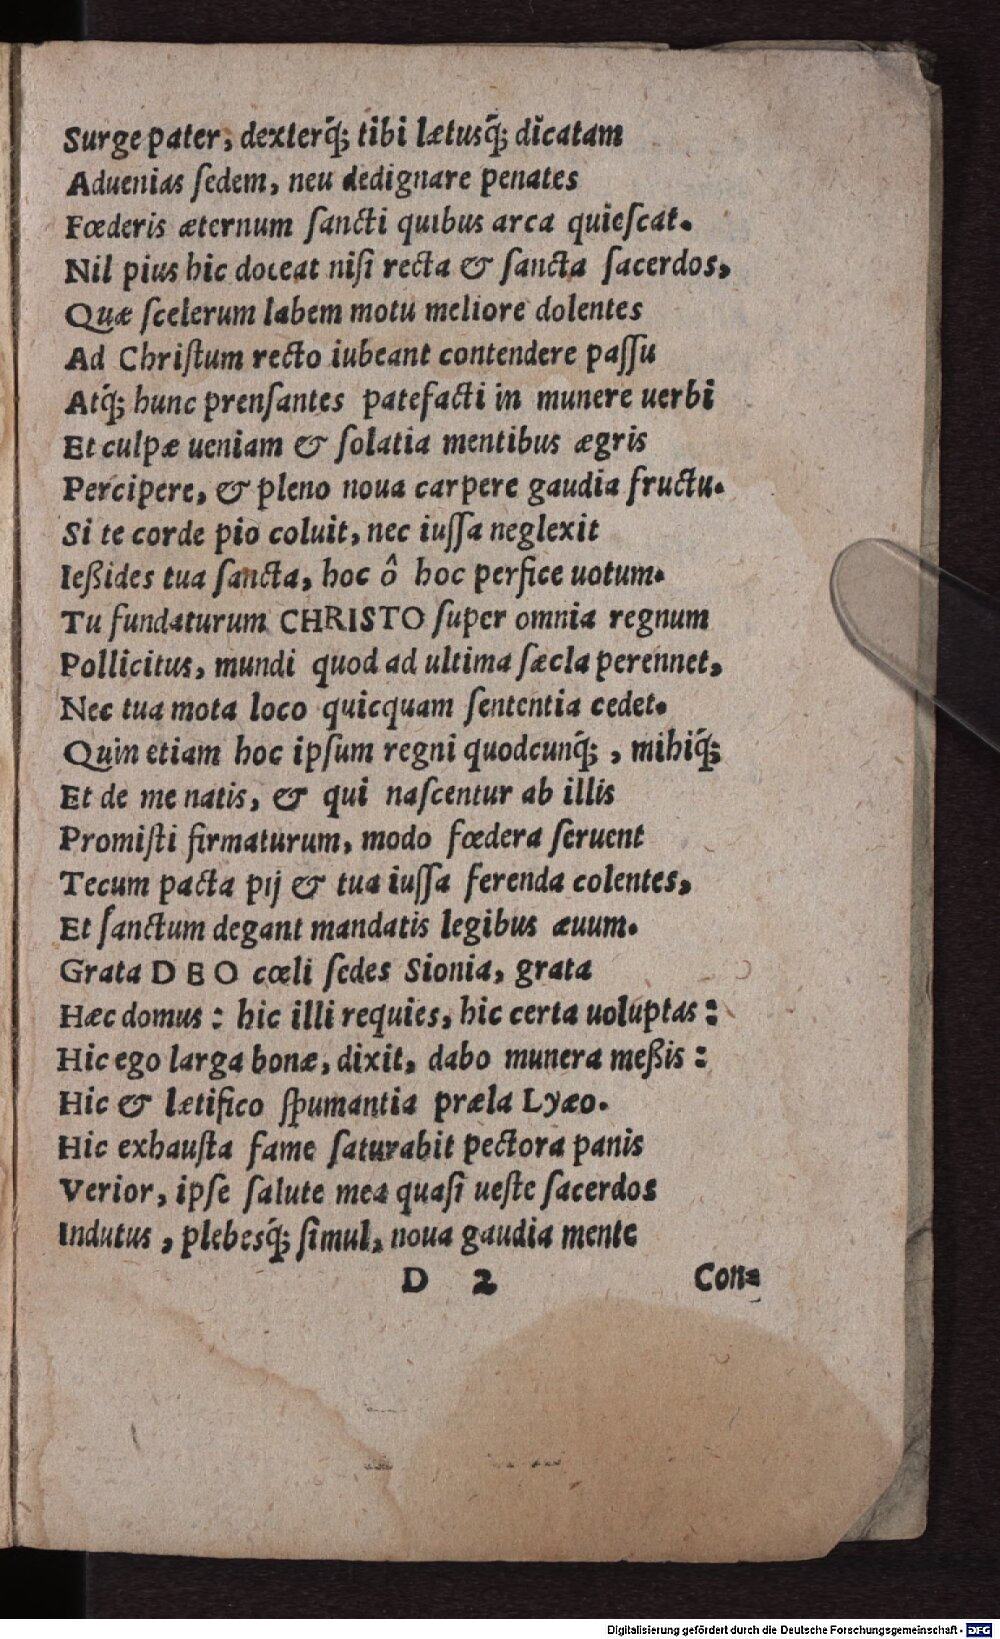 Surge pater, dexterq́; tibi lætusq́; dicatam
Aduenias ſedem, neu dedignare penates
Fœderis æternum ſancti quibus arca quieſcat.
Nil pius hic doceat niſi recta & ſancta ſacerdos,
Quæ ſcelerum labem motu meliore dolentes
Ad Chriſtum recto iubeant contendere paſſu
Atq́; hunc prenſantes patefacti in munere uerbi
Et culpæ ueniam & ſolatia mentibus ægris
Percipere, & pleno noua carpere gaudia fructu.
Si te corde pio coluit, nec iuſſa neglexit
Ießides tua ſancta, hoc ô hoc perfice uotum.
Tu fundaturum CHRISTO ſuper omnia regnum
Pollicitus, mundi quod ad ultima ſæcla perennet,
Nec tua mota loco quicquam ſententia cedet.
Quin etiam hoc ipſum regni quodcunq́; , mihiq́;
Et de me natis, & qui naſcentur ab illis
Promiſti firmaturum, modo fœdera ſeruent
Tecum pacta pij & tua iuſſa ferenda colentes,
Et ſanctum degant mandatis legibus æuum.
Grata DEO cœli ſedes Sionia, grata
Hæc domus : hic illi requies, hic certa uoluptas :
Hic ego larga bonæ, dixit, dabo munera meßis :
Hic & lætifico ſpumantia præla Lyæo.
Hic exhauſta fame ſaturabit pectora panis
Verior, ipſe ſalute mea quaſi ueſte ſacerdos
Indutus , plebesq́; ſimul, noua gaudia mente
D 2 Con=
Digitalisierung gefördert durch die Deutsche Forschungsgemeinschaft - DFG